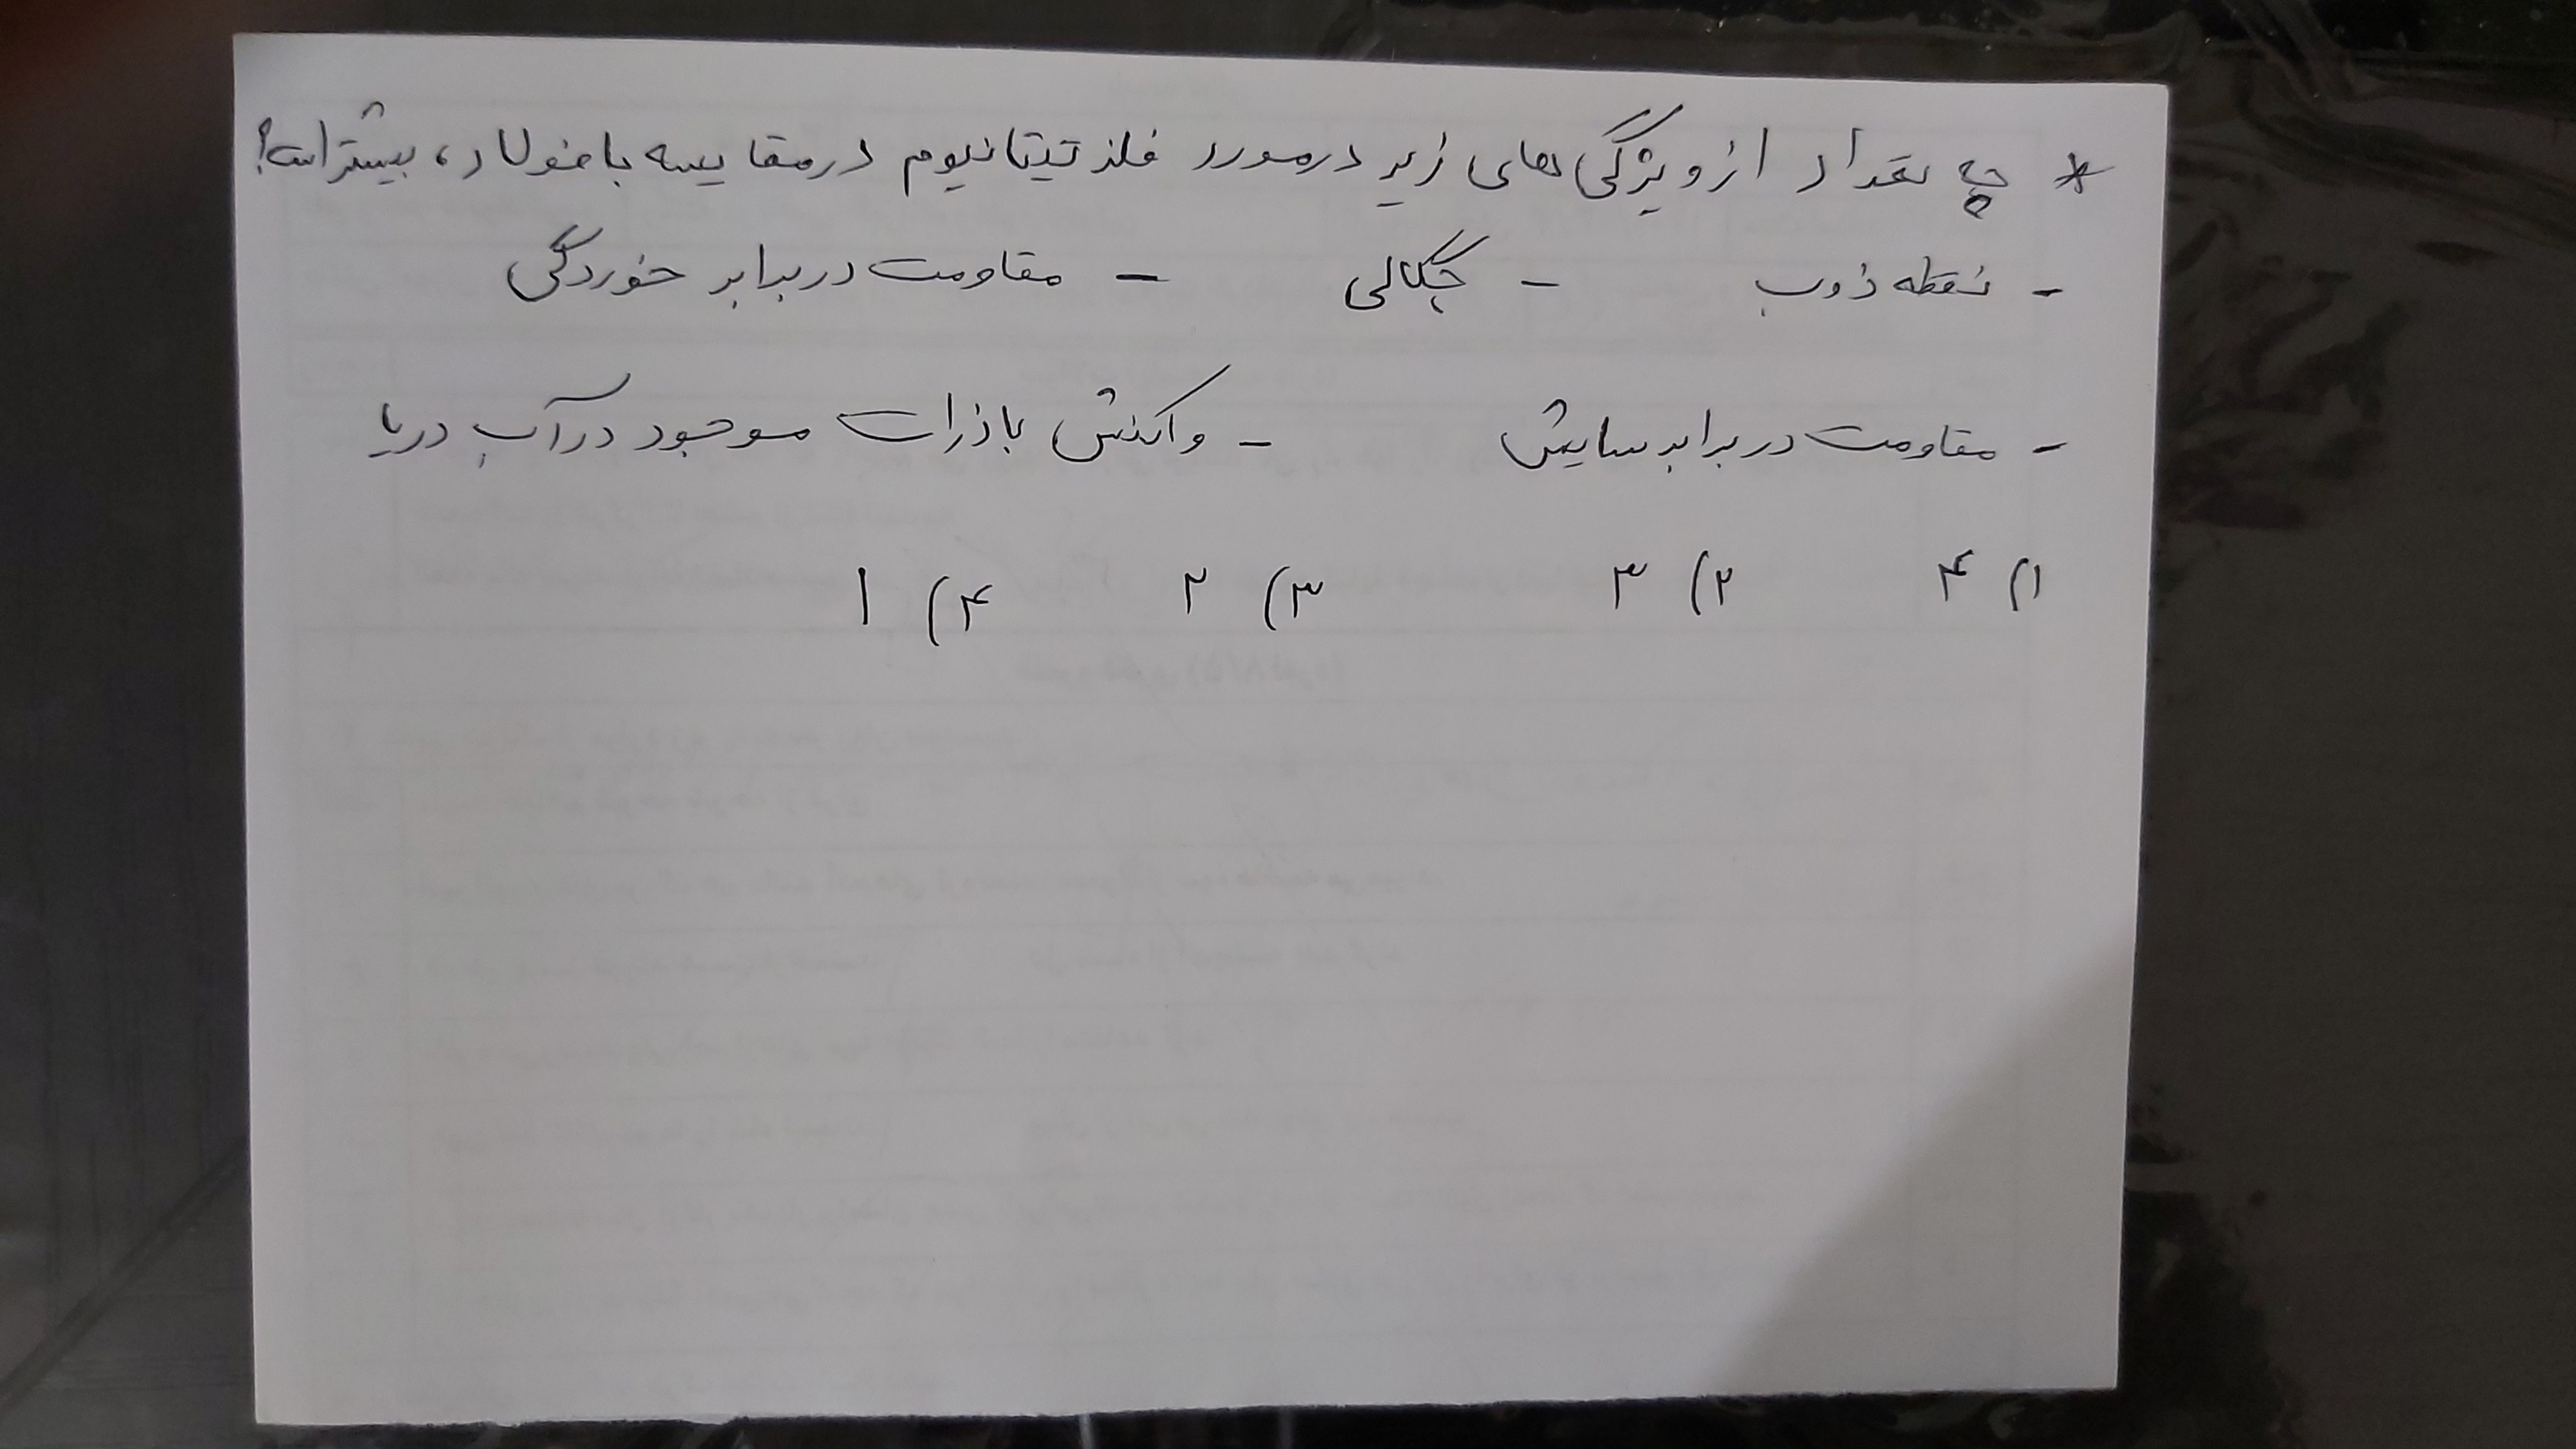 * چه تعداد از ویژگی‌های زیر در مورد فلز تیتانیوم در مقایسه با فولاد، بیشتر است؟
- نقطه ذوب - چگالی - مقاومت در برابر خوردگی
- مقاومت در برابر سایش - واکنش با ذرات موجود در آب دریا
۱) ۴ ۲) ۳ ۳) ۲ ۴) ۱